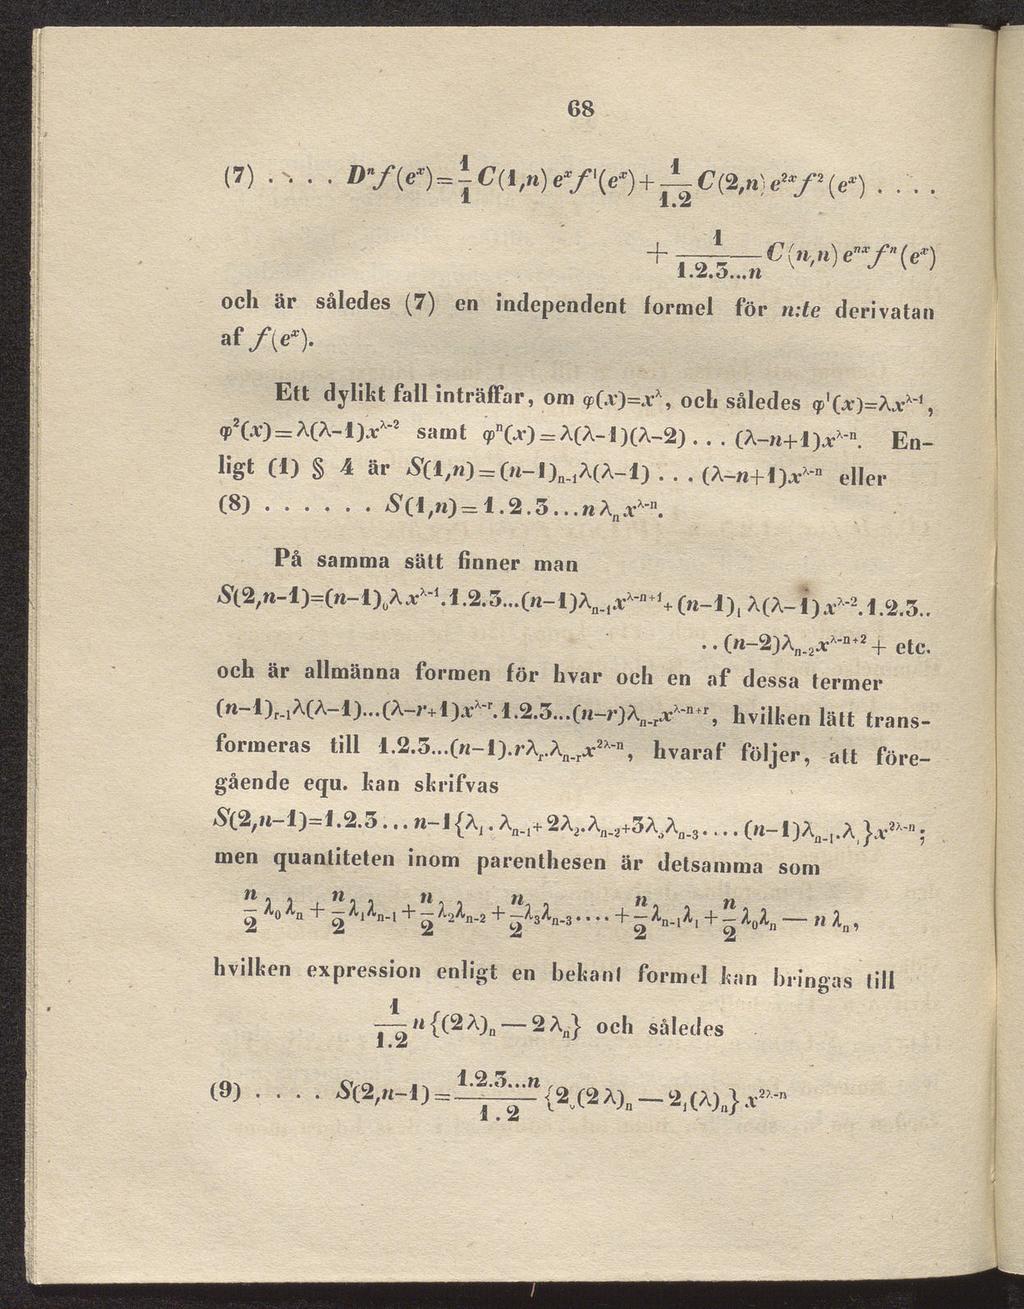 68
(7) . . . . Dⁿf(eˣ)=1/1 C(1,n) eˣf¹(eˣ)+1/1.2 C(2,n) e²ˣf²(eˣ) . . . .
+ 1/1.2.3...n C(n,n) eⁿˣfⁿ(eˣ)
och är således (7) en independent formel för n:te derivatan
af f(eˣ).
Ett dylikt fall inträffar, om φ(x)=x^λ, och således φ¹(x)=λx^{λ-1},
φ²(x)=λ(λ-1)x^{λ-2} samt φⁿ(x)=λ(λ-1)(λ-2)...(λ-n+1)x^{λ-n}. En-
ligt (1) § 4 är S(1,n)=(n-1)_{n-1}λ(λ-1)...(λ-n+1)x^{λ-n} eller
(8) . . . . . . S(1,n)=1.2.3...nλ_n x^{λ-n}.
På samma sätt finner man
S(2,n-1)=(n-1)_0λx^{λ-1}.1.2.3...(n-1)λ_{n-1}x^{λ-n+1}+(n-1)_1 λ(λ-1)x^{λ-2}.1.2.3..
..(n-2)λ_{n-2}x^{λ-n+2}+ etc.
och är allmänna formen för hvar och en af dessa termer
(n-1)_{r-1}λ(λ-1)...(λ-r+1)x^{λ-r}.1.2.3...(n-r)λ_{n-r}x^{λ-n+r}, hvilken lätt trans-
formeras till 1.2.3...(n-1).rλ_r.λ_{n-r}x^{2λ-n}, hvaraf följer, att före-
gående equ. kan skrifvas
S(2,n-1)=1.2.3...n-1{λ_1.λ_{n-1}+2λ_2.λ_{n-2}+3λ_3λ_{n-3}....(n-1)λ_{n-1}.λ_1}x^{2λ-n};
men quantiteten inom parenthesen är detsamma som
n/2 λ_0λ_n + n/2 λ_1λ_{n-1} + n/2 λ_2λ_{n-2} + n/2 λ_3λ_{n-3}....+ n/2 λ_{n-1}λ_1 + n/2 λ_0λ_n — n λ_n,
hvilken expression enligt en bekant formel kan bringas till
1/1.2 n{(2λ)_n — 2λ_n} och således
(9) . . . . S(2,n-1)=1.2.3...n/1.2 {2_0(2λ)_n — 2_1(λ)_n} x^{2λ-n}